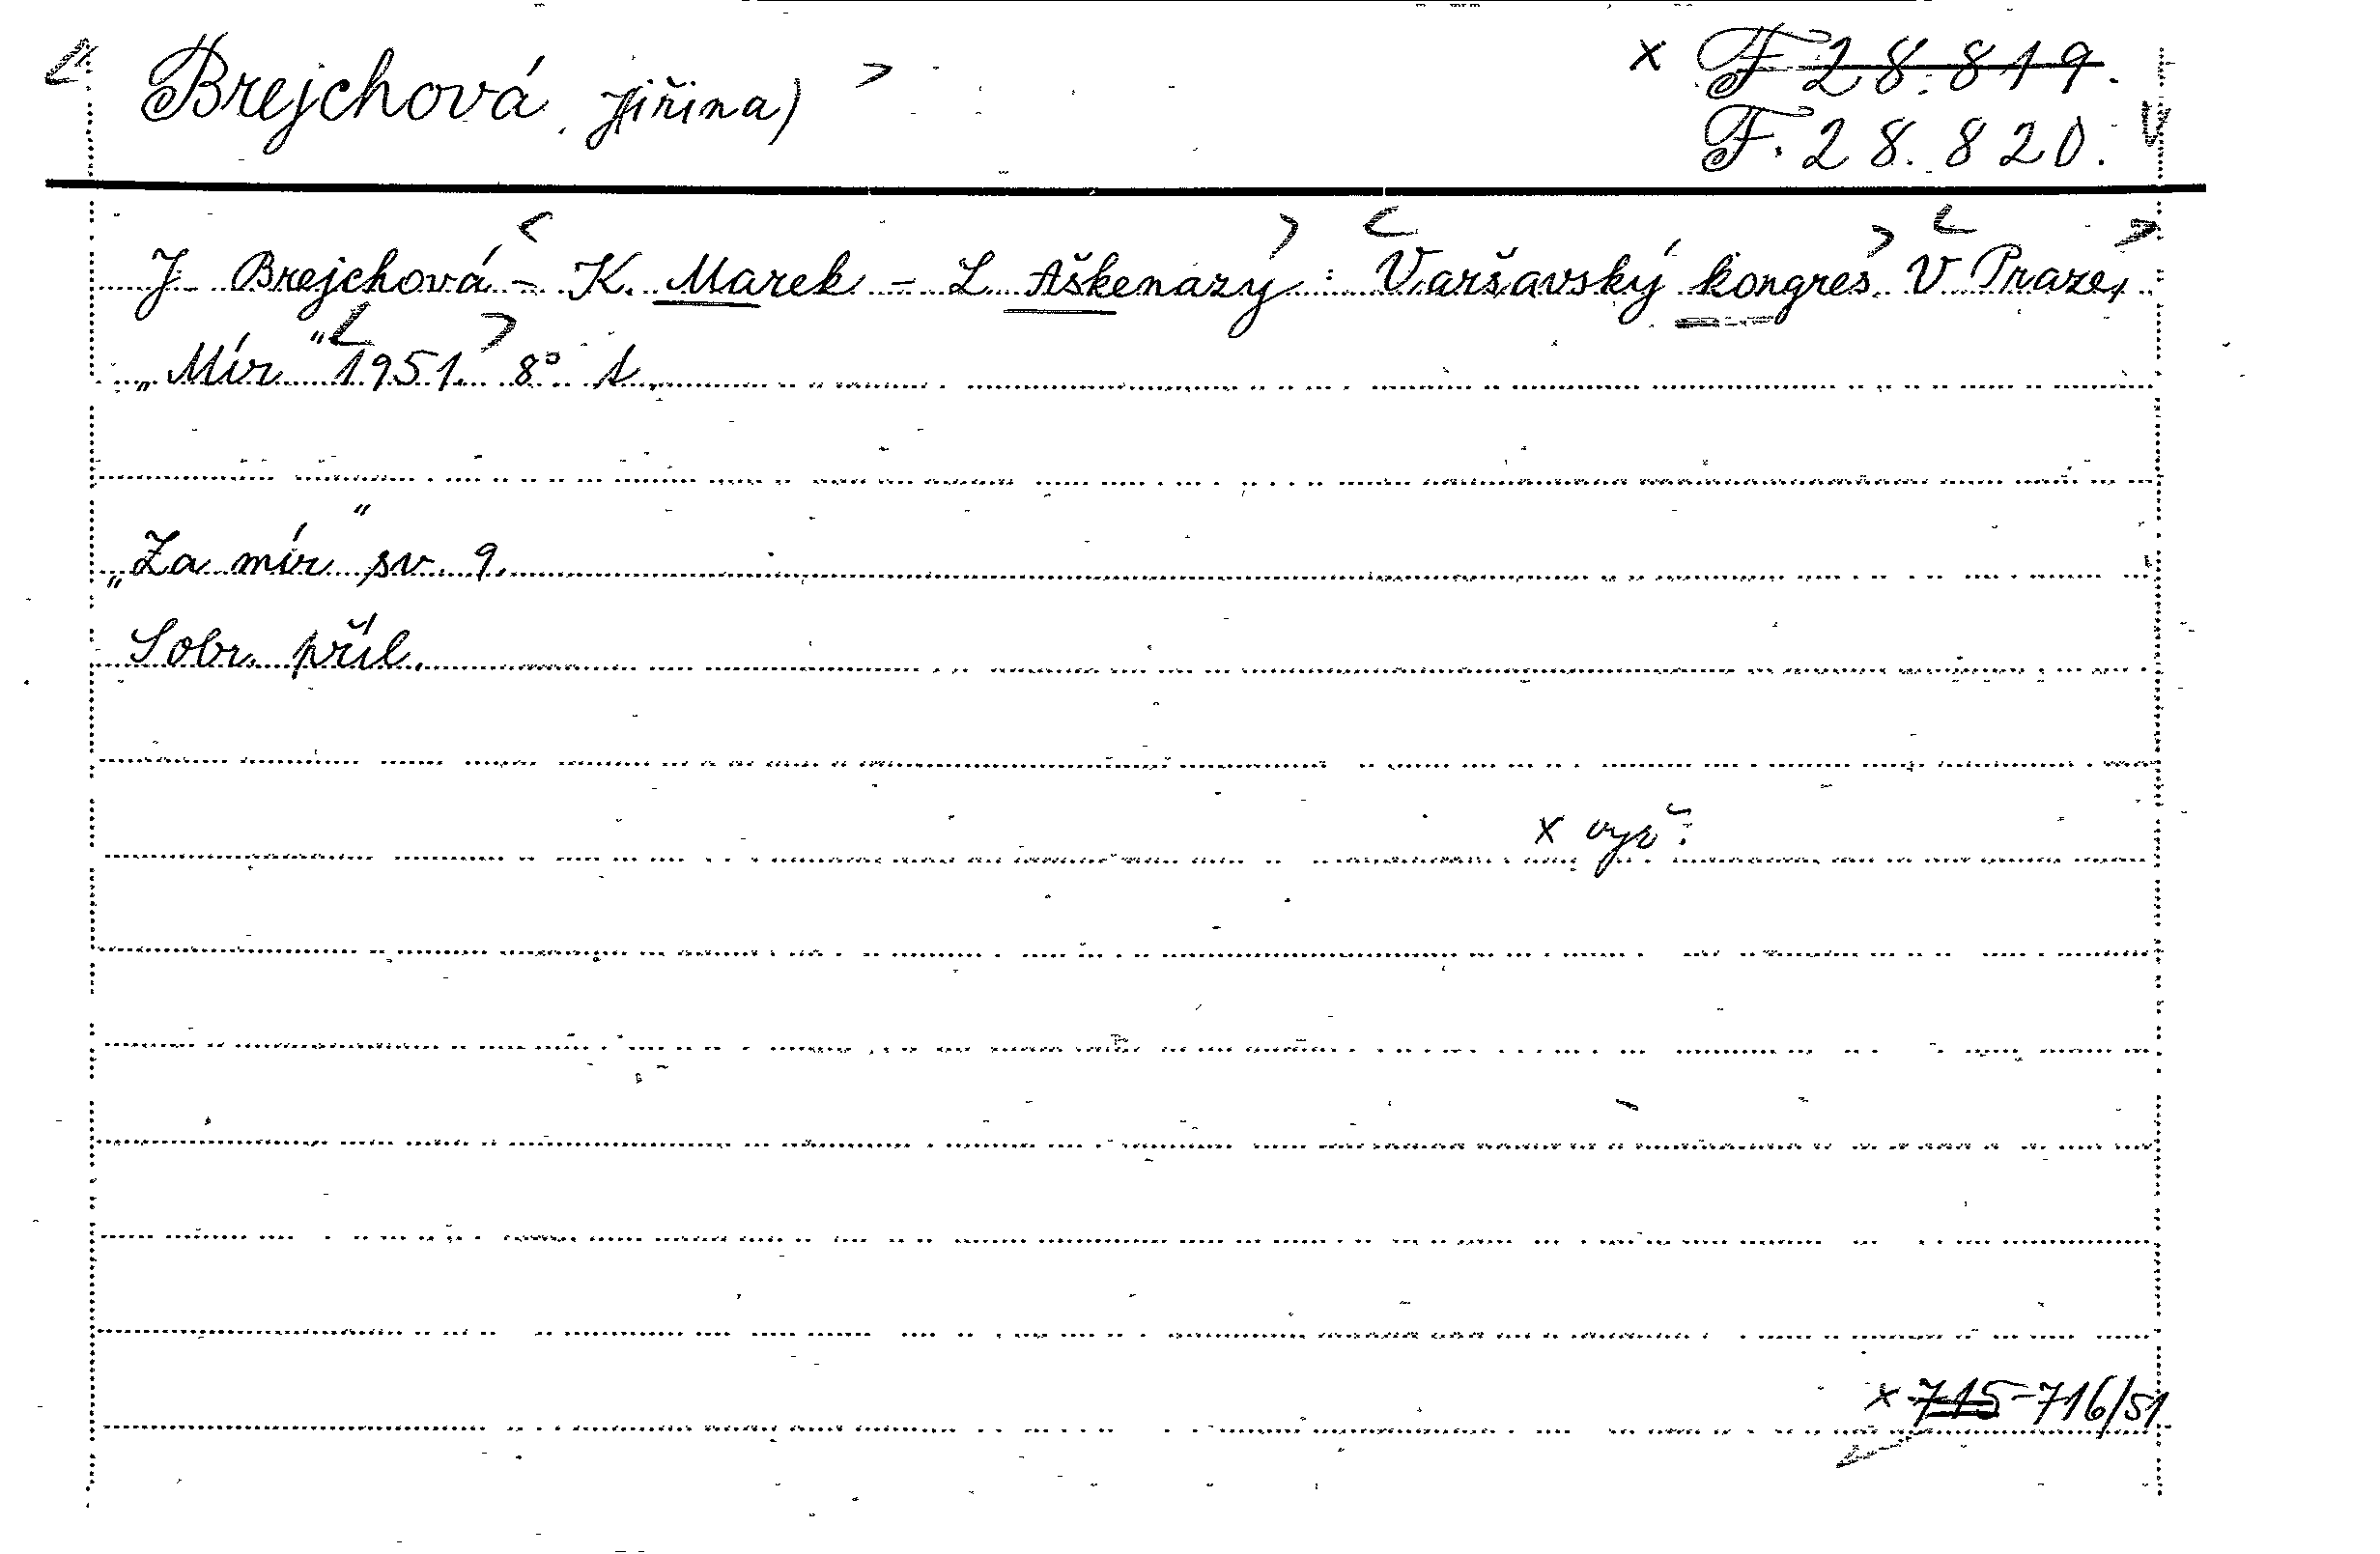 Brejchová, J(iřina)
x F 28.819.
F. 28.820.
J. Brejchová - K. Marek - L. Aškenazy: Varšavský kongres. V Praze,
„Mír" 1951. 8°
„Za mír" sv. 9.
Sobr. příl.
x vyř.
x 715-716/51